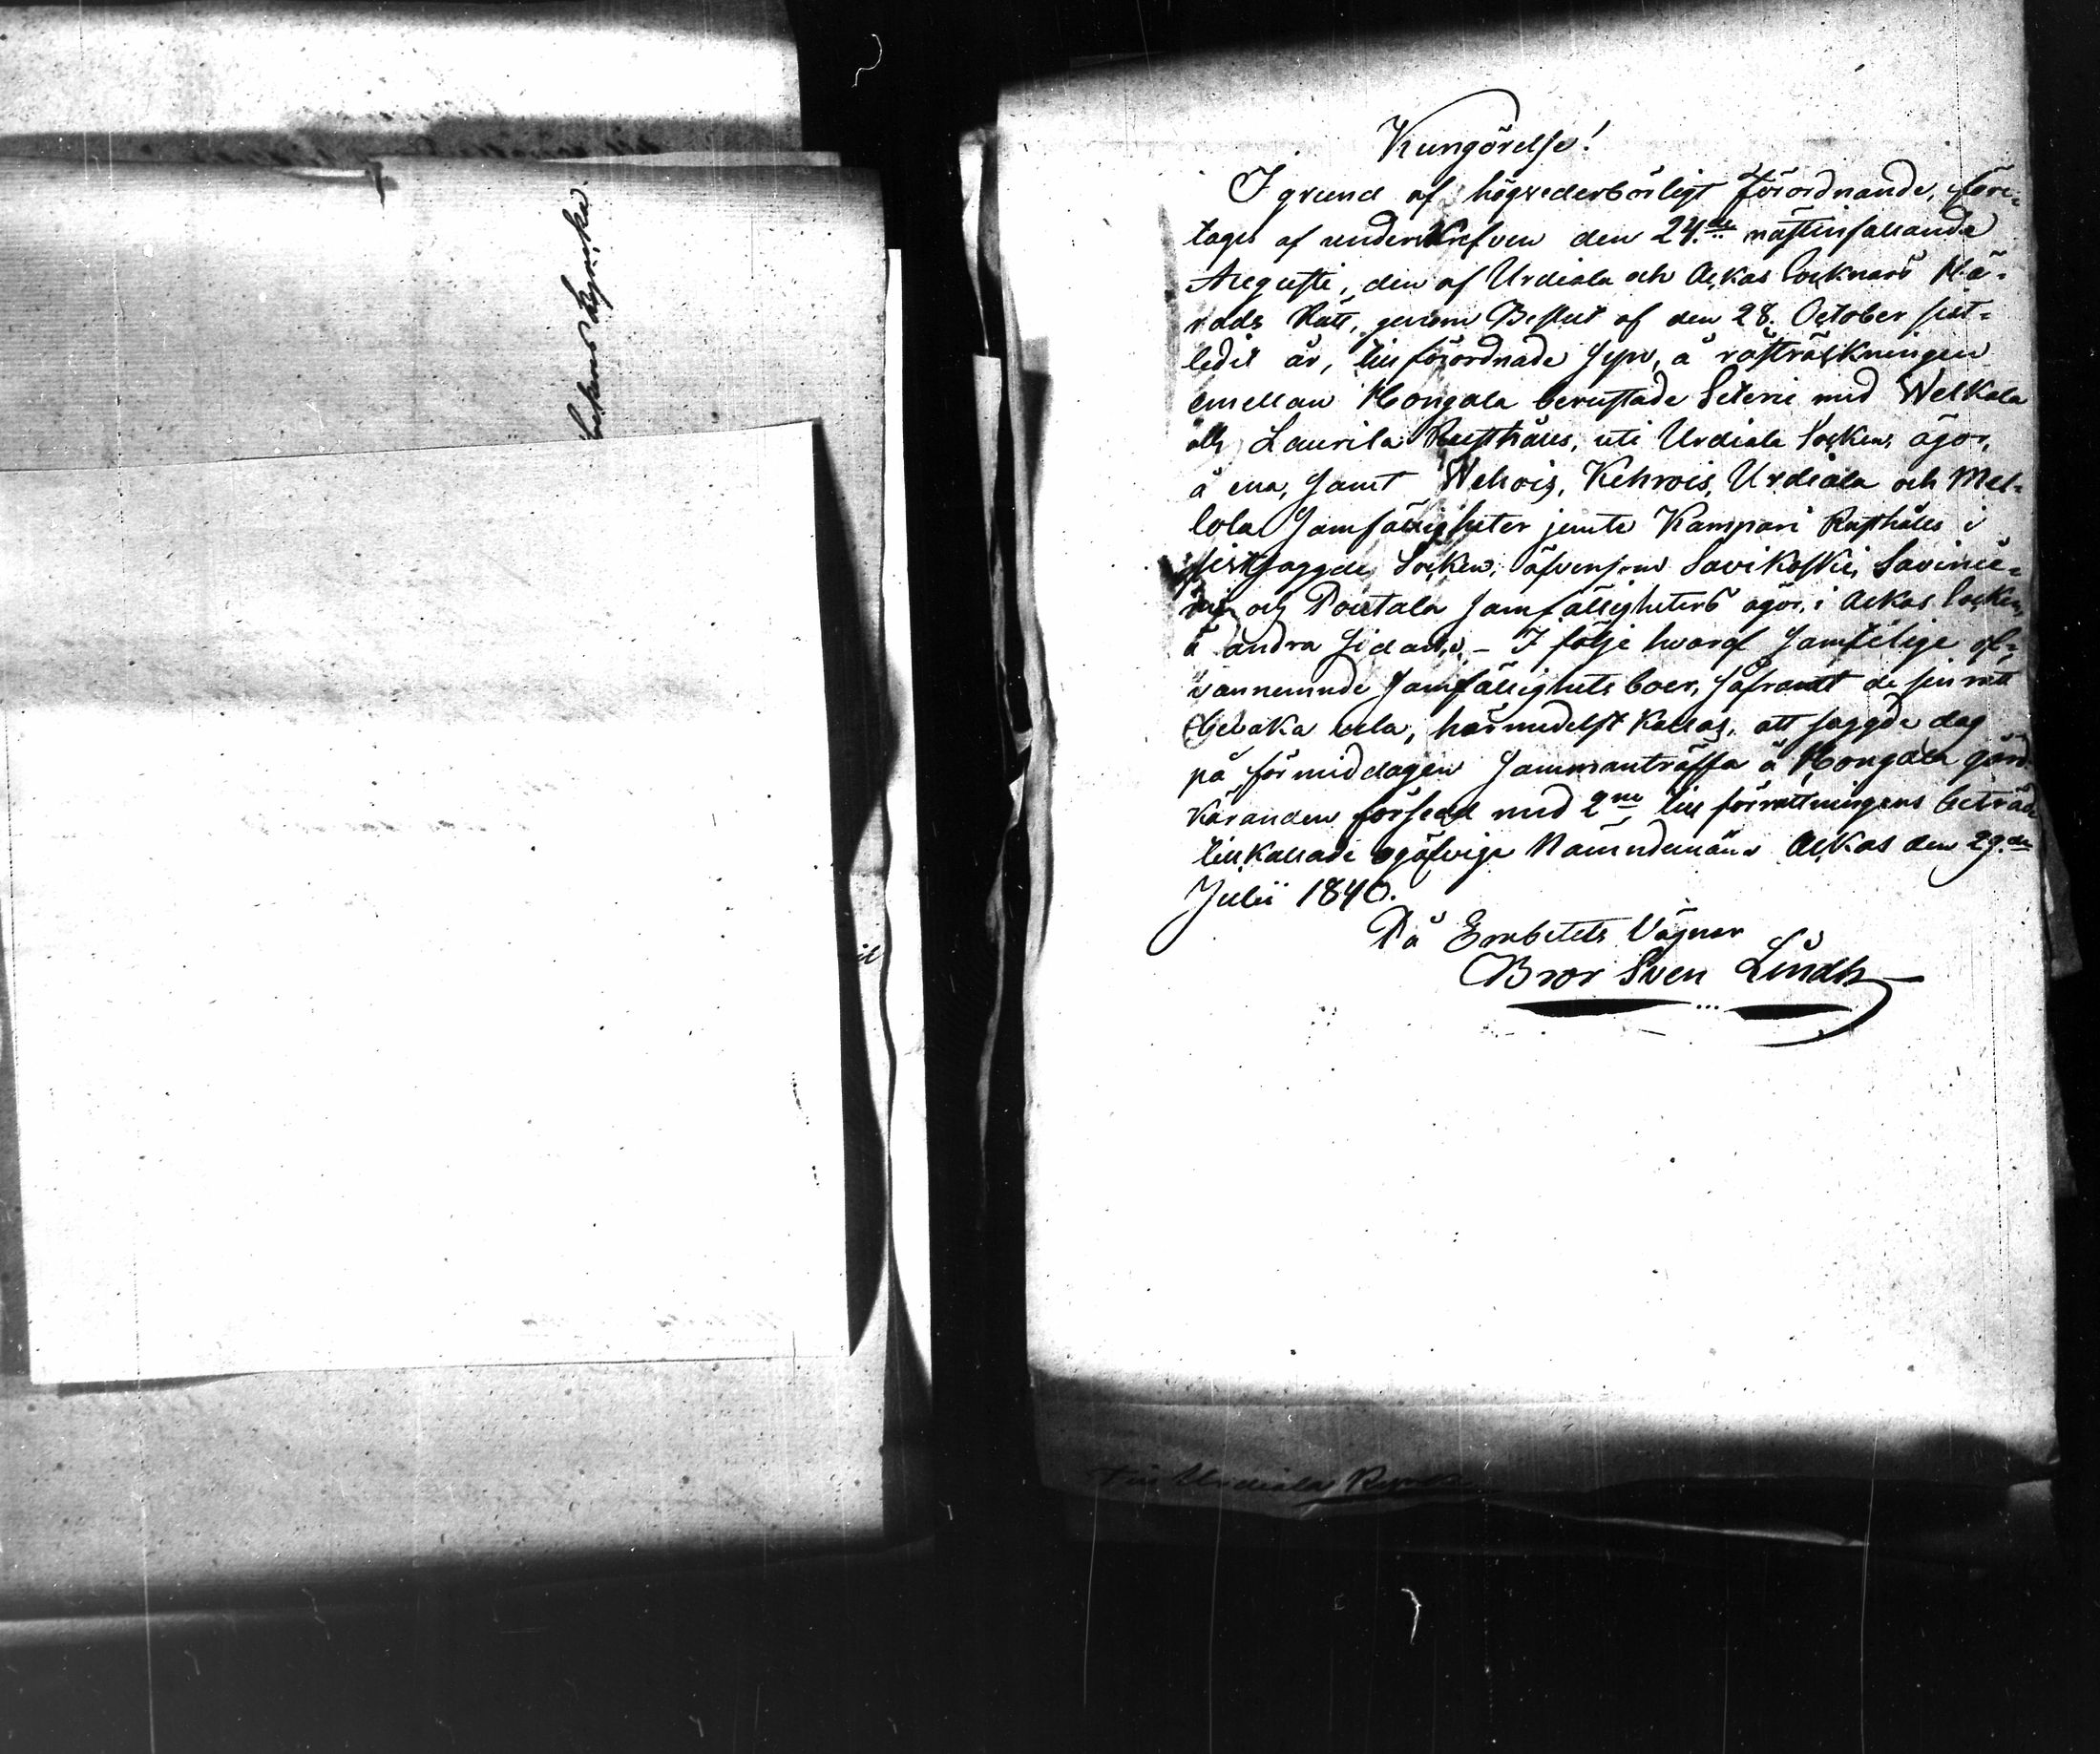 Sockens Kyrcka
Kungörelse!
I grund af högvederbörligt förordnande, före-
tages af undertecknad den 24de nästinfallande
Augusti, den af Urdiala och Ackas Socknars Hä-
rads Rätt, genom Beslut af den 28. October sist-
ledit år, till förordnade Syn, å råsträckningen
emellan Hongola berustade Säterie med Welkala
och Laurila Rusthålls, uti Urdiala Socken, ägor,
å ena, samt Wehois, Kehrois, Urdiala och Mel-
lola Samfälligheter jemte Kampari Rusthålls i
sistsagde Socken, äfvensom Savikoski, Savinie-
mi och Poutala Samfälligheters ägor, i Ackas Socken,
å andra Sidan. – I följe hvaraf Samtelige of-
vannemnde Samfällighets boer, såframt de sin rätt
bevaka vela, härmedelst kallas, att sagde dag
på förmiddagen Sammanträffa å Hongola gård
Käranden försedd med 2ne till förrättningens beträde
tillkallade ojäfvige Nämndemän. Ackas den 29de
Julii 1840.
På Embetets Vägnar
Bror Sven Lindh
Till Urdiala Kyrka